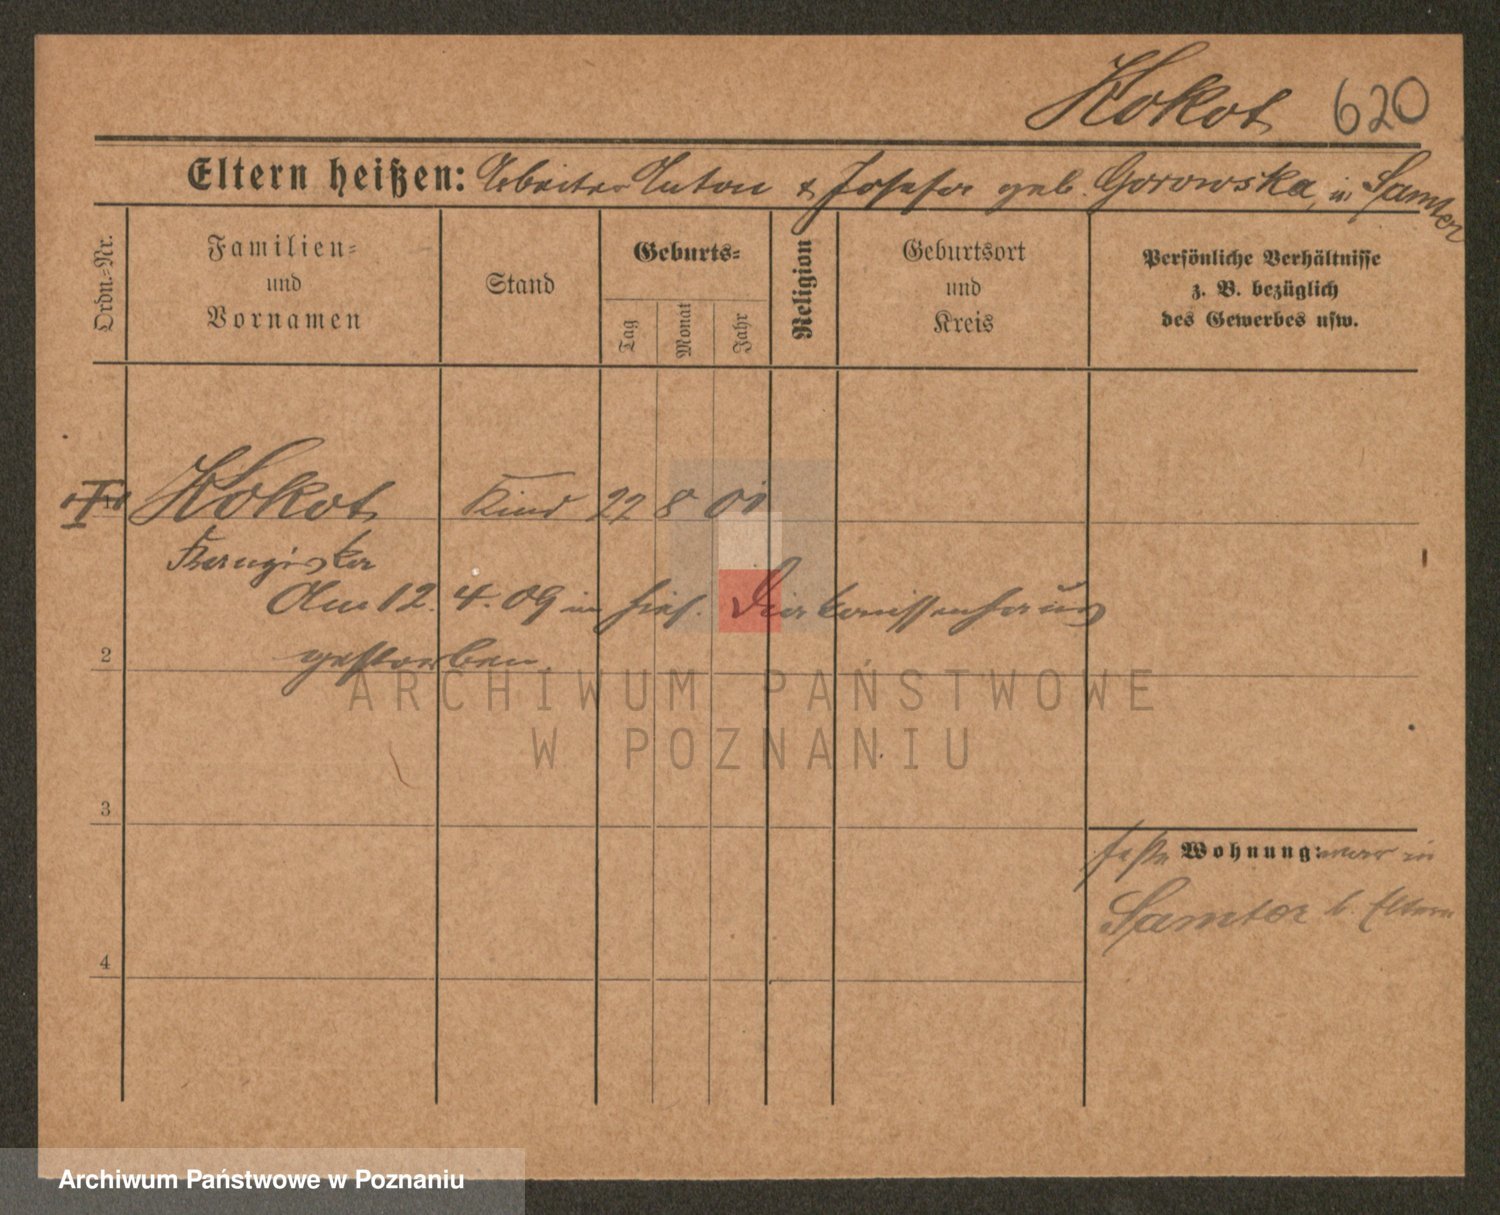 Kokot 620
Eltern heißen: Arbeiter Anton & Josefa geb. Gorowska, in Samter
Ordn.-Nr.
Familien-
und
Vornamen
Stand
Geburts-
Tag
Monat
Jahr
Religion
Geburtsort
und
Kreis
Persönliche Verhältnisse
z. B. bezüglich
des Gewerbes usw.
1 Kokot Kind 22 8 01
Franziska
Am 12. 4. 09 im hies. Diakonissenhaus
2
gestorben.
ARCHIWUM PAŃSTWOWE
W POZNANIU
3
feste Wohnung: war in
Samter b. Eltern
4
Archiwum Państwowe w Poznaniu